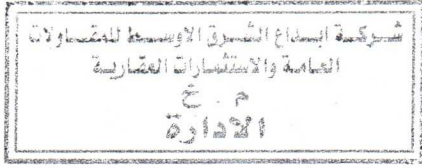 شركة ابداع الشرق الاوسط للمقاولات
العامة والاستثمارات العقارية
م . خ
الادارة